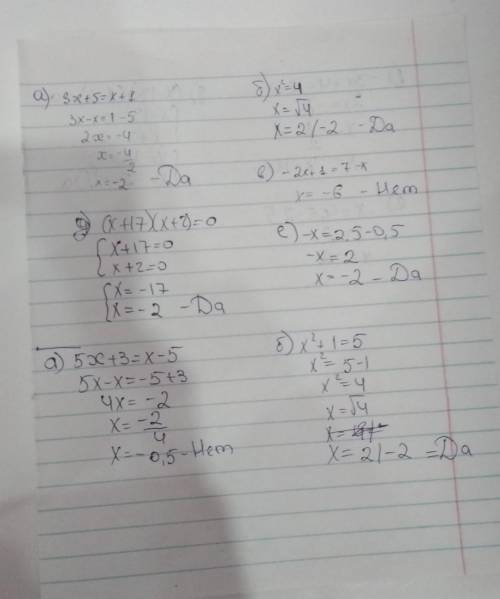 а) 3x+5=x+1
3x-x=1-5
2x=-4
x=-4/2
x=-2 - Да
б) x²=4
x=√4
x=2/-2 - Да
в) -2x+1=7-x
x=-6 - Нет
д) (x+17)(x+2)=0
{x+17=0
x+2=0
{x=-17
x=-2 - Да
е) -x=2,5-0,5
-x=2
x=-2 - Да
а) 5x+3=x-5
5x-x=-5+3
4x=-2
x=-2/4
x=-0,5 - Нет
б) x²+1=5
x²=5-1
x²=4
x=√4
x=
x=2/-2 =Да